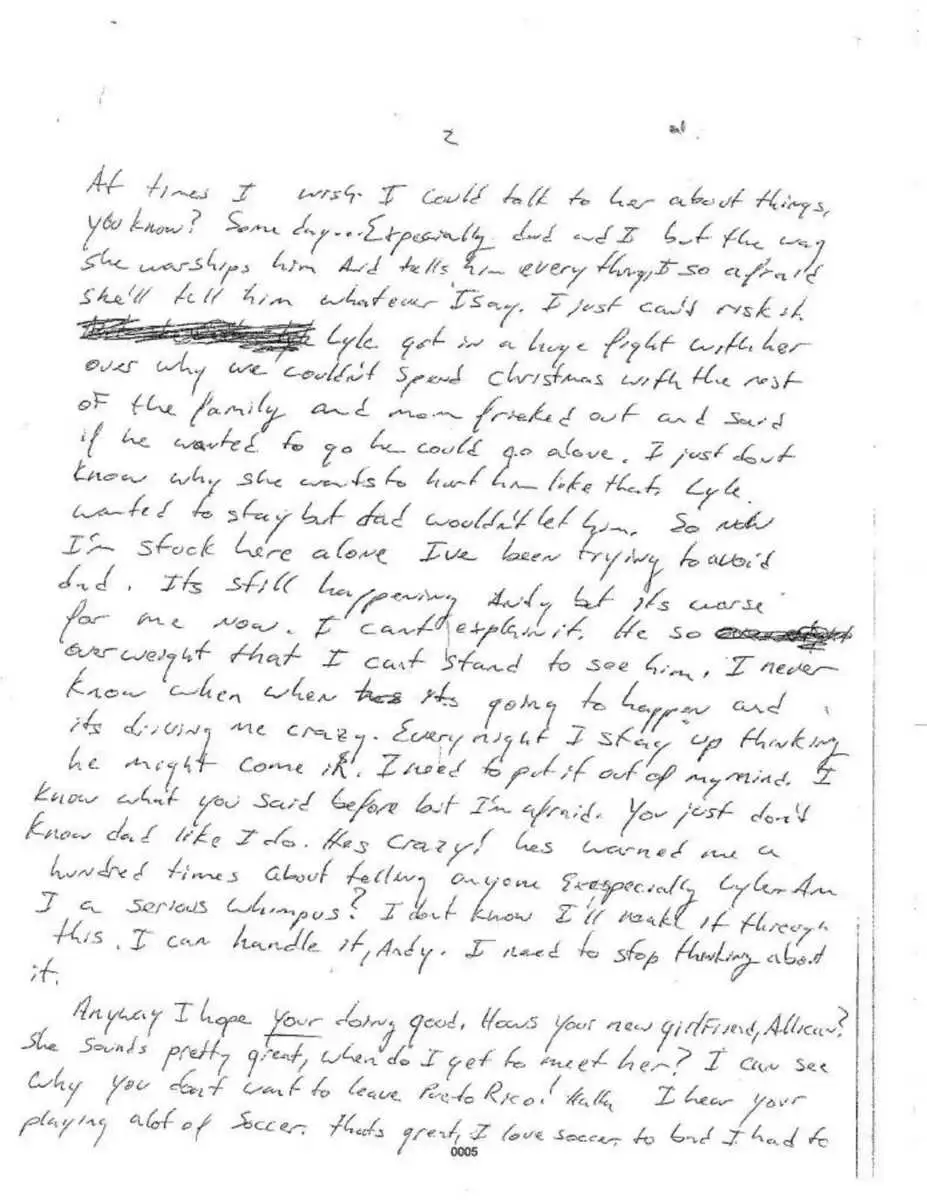 2
At times I wish I could talk to her about things,
you know? Some day... Expecially dad and I but the way
she warships him and tells him everything, I so afraid
she'll tell him whatever I say. I just can't risk it.
Lyle got in a huge fight with her
over why we couldn't spend christmas with the rest
of the family and mom frieked out and said
if he wanted to go he could go alone. I just dont
know why she wants to hurt him like that. Lyle
wanted to stay but dad wouldn't let him. So now
I'm stuck here alone I've been trying to avoid
dad. Its still happening Andy but its worse
for me now. I can't explain it. He so
overweight that I cant stand to see him. I never
know when when its going to happen and
its driving me crazy. Every night I stay up thinking
he might come in. I need to put it out of my mind. I
know what you said before but I'm afraid. You just don't
know dad like I do. Hes crazy! hes warned me a
hundred times about telling anyone Exespecially Lyle. Am
I a serious whimpus? I dont know I'll make it through
this. I can handle it, Andy. I need to stop thinking about
it.
Anyway I hope your doing good. Hows your new girlfriend,
She sounds pretty great, when do I get to meet her? I can see
why you dont want to leave Puerto Rico! Haha I hear your
playing alot of soccer. thats great, I love soccer. to bad I had to
0005